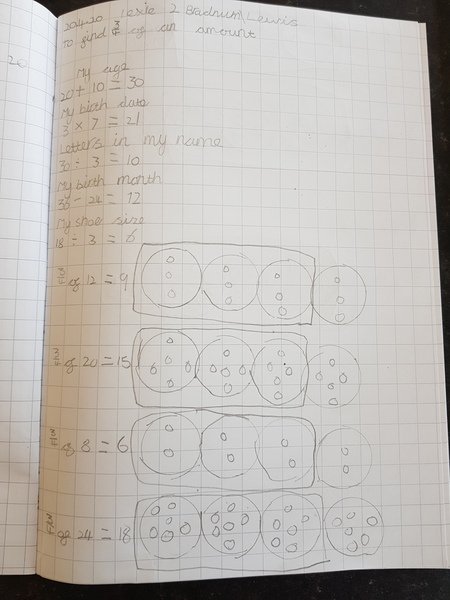 20.4.20 Lexie 2 Bradnum Lewis
To find 3/4 of an amount
20
My age
20 + 10 = 30
My birth date
3 × 7 = 21
Letters in my name
30 ÷ 3 = 10
My birth month
36 - 24 = 12
My shoe size
18 ÷ 3 = 6
3/4 of 12 = 9
3/4 of 20 = 15
3/4 of 8 = 6
3/4 of 24 = 18